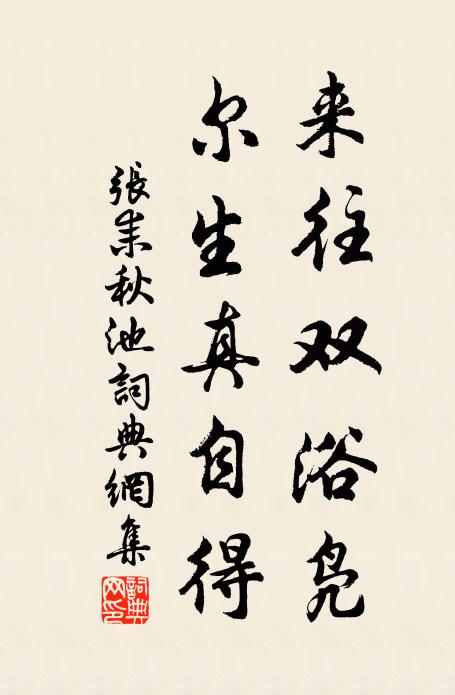 来往双浴凫
尔生真自得
張耒秋池詞典網集
詞典网印